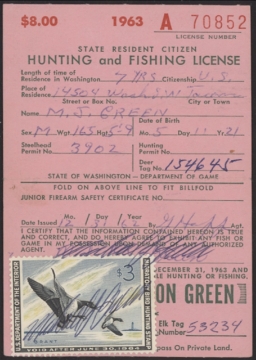 $8.00 1963 A 70852
LICENSE NUMBER
STATE RESIDENT CITIZEN
HUNTING and FISHING LICENSE
Length of time of
Residence in Washington 7 YRS Citizenship U.S.
Place of
Residence 14504
Street or Box No. City or Town
Name M.J. GREEN
Date of Birth
Sex M Wgt 165 5-9 Mo. 5 Day 11 Yr. 21
Steelhead Hunting
Permit No. 3902 Permit No.
Deer
Tag No. 154645
STATE OF WASHINGTON—DEPARTMENT OF GAME
FOLD ON ABOVE LINE TO FIT BILLFOLD
JUNIOR FIREARM SAFETY CERTIFICATE NO.
Mo. Day Year
Date Issued By
I CERTIFY THAT THE INFORMATION CONTAINED HEREON IS TRUE
AND CORRECT, AND DO HEREBY AGREE TO EXHIBIT ANY FISH OR
GAME IN MY POSSESSION UPON DEMAND OF ANY AUTHORIZED
AGENT.
DECEMBER 31, 1963 AND
GAME REGULATIONS OF
ON GREEN
Elk Tag
No. 53234
Pass On Private Land.
U.S. DEPARTMENT OF THE INTERIOR
$3
MIGRATORY BIRD HUNTING STAMP
BRANT
VOID AFTER JUNE 30, 1964